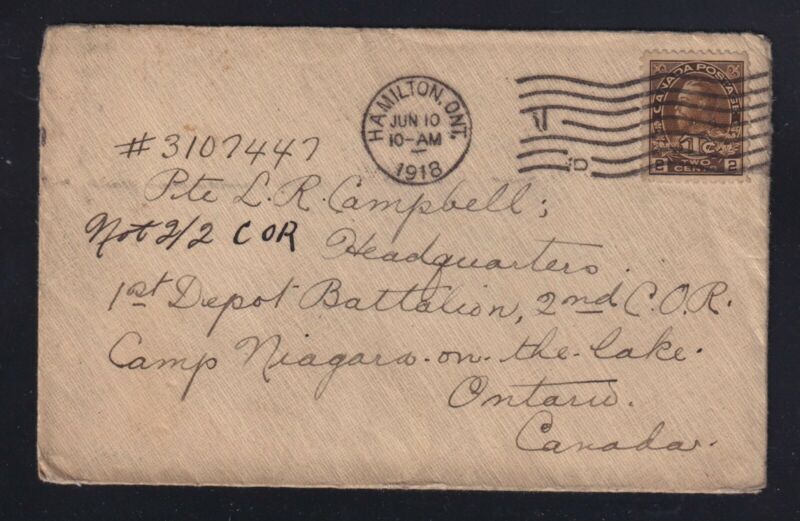 HAMILTON, ONT.
JUN 10
10-AM
1918
CANADA POSTAGE
1Tc
2 TWO CENTS 2
#3107447
Pte L. R. Campbell;
Not 2/2 C OR
Headquarters.
1st Depot Battalion, 2nd C.O.R.
Camp Niagara-on-the-lake.
Ontario.
Canada.